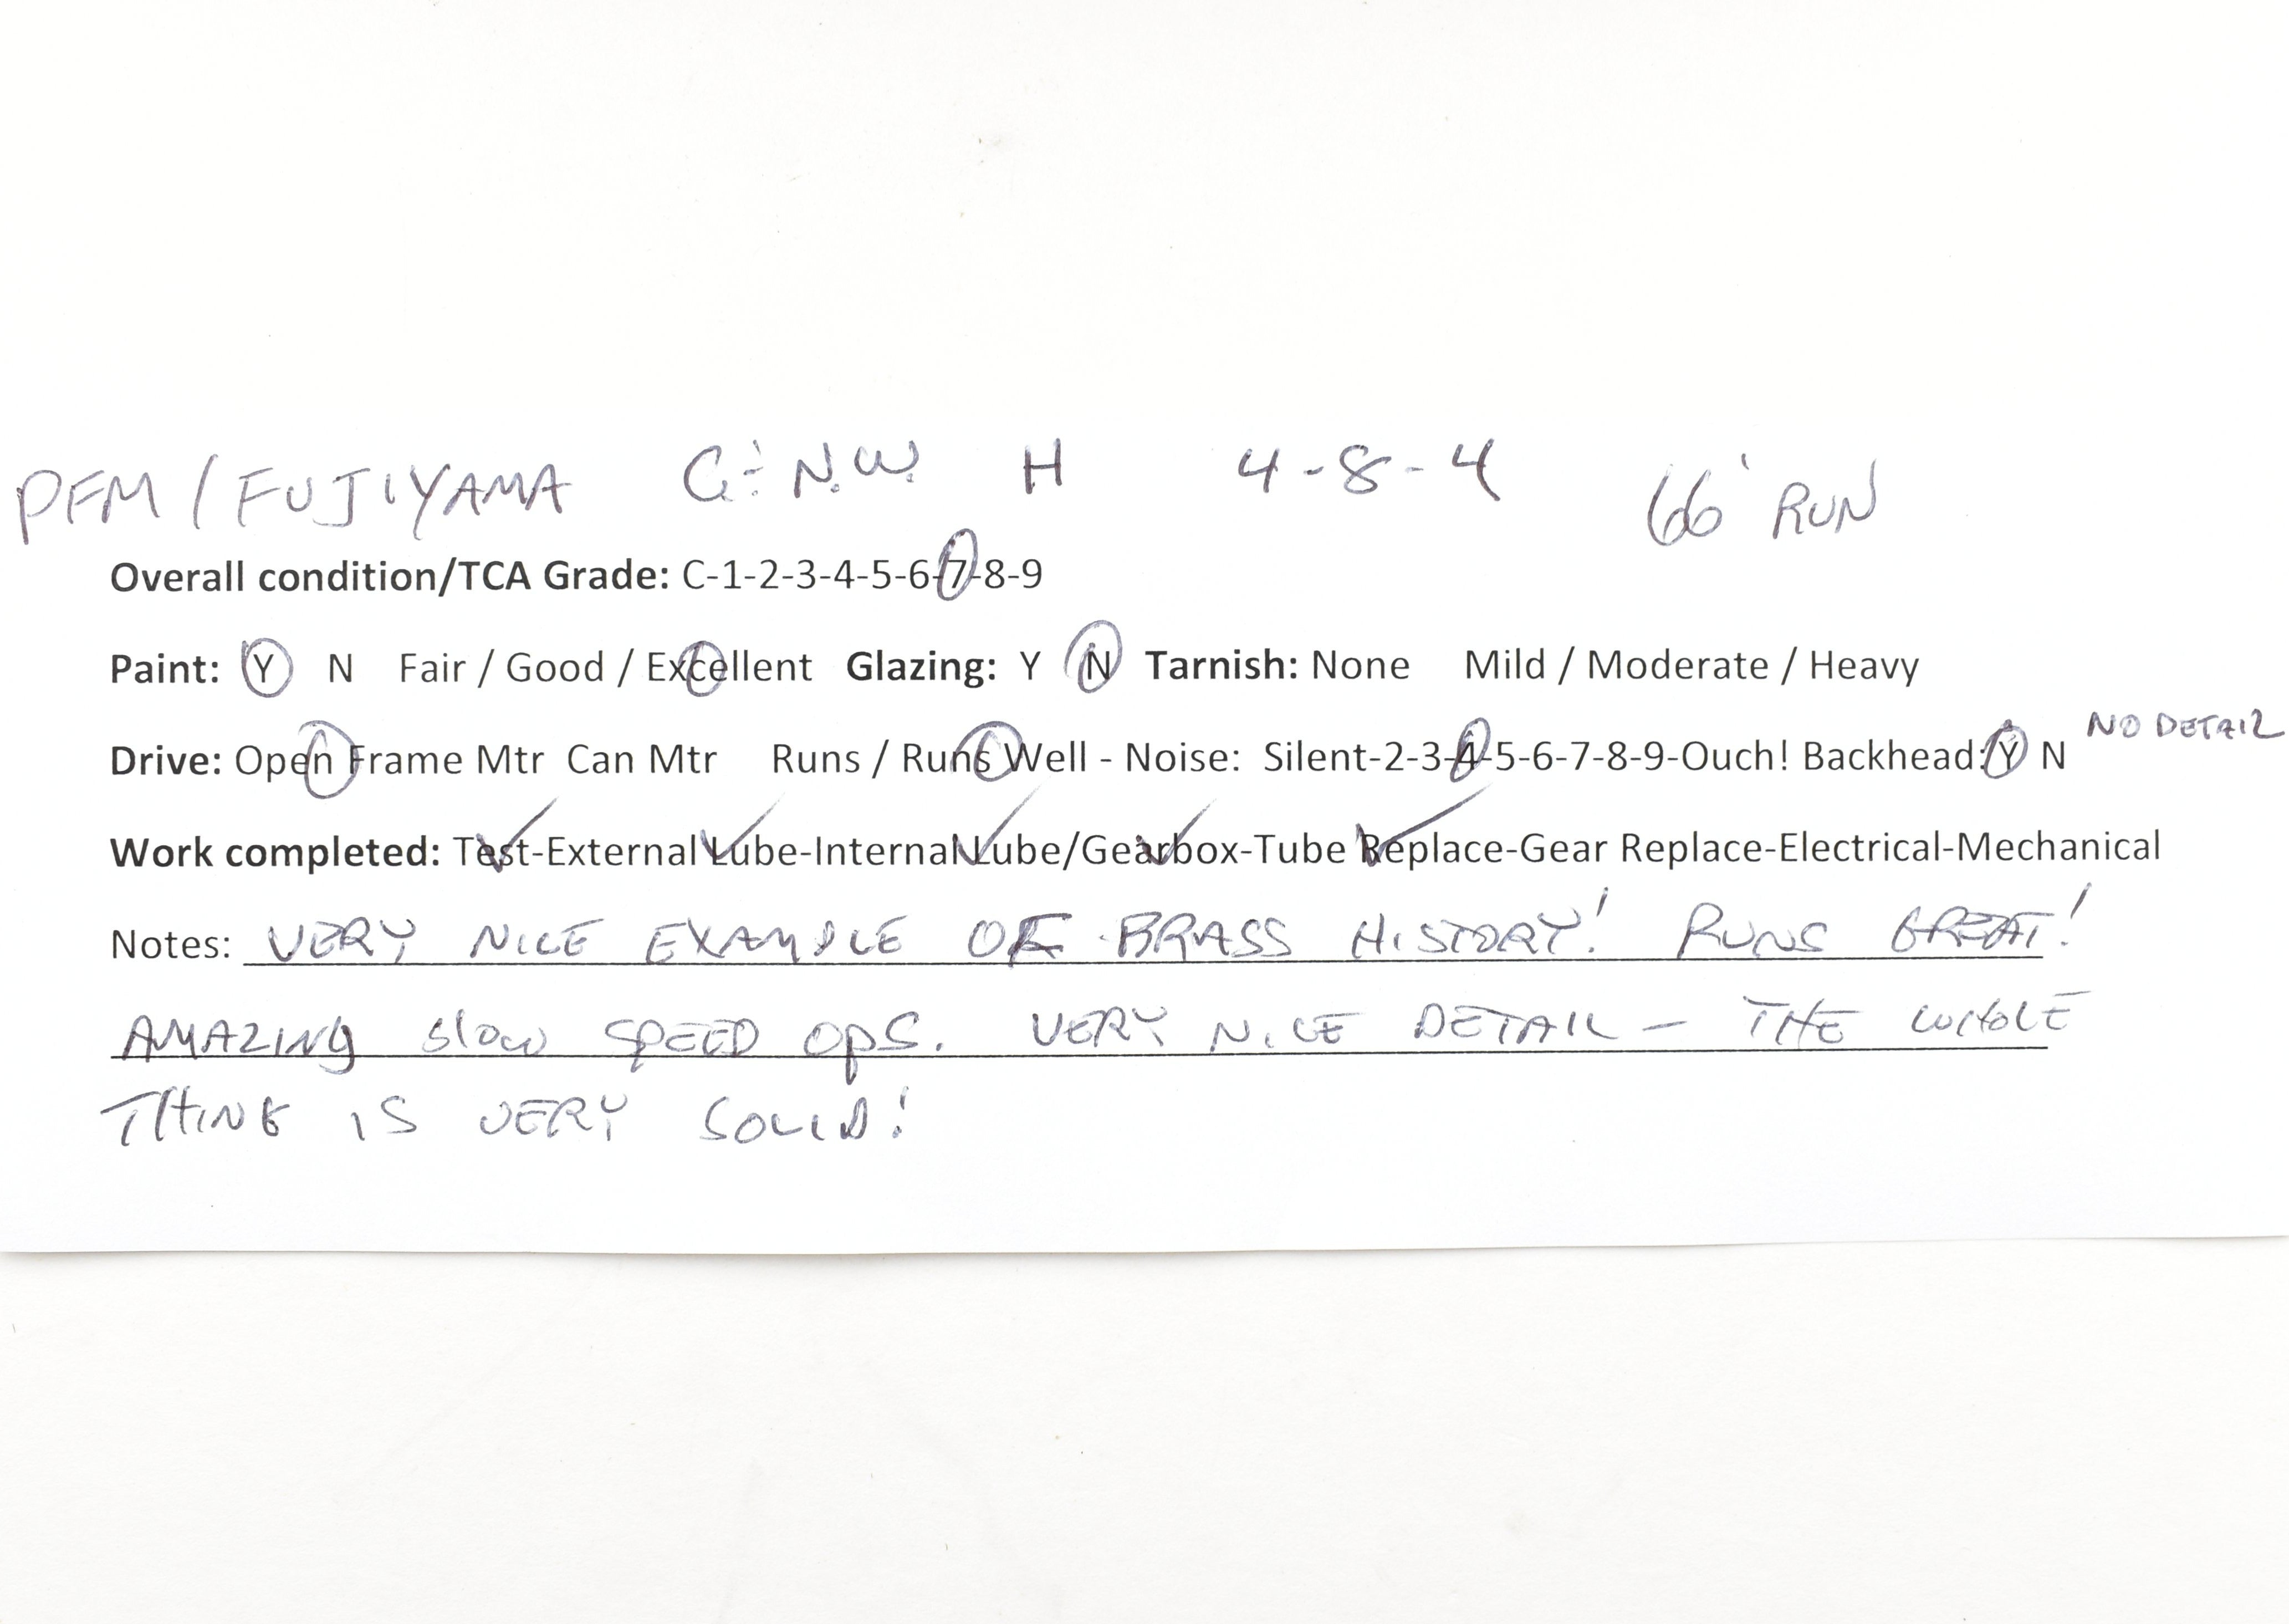 PFM / FUJIYAMA C&N.W. H 4-8-4 66' RUN
Overall condition/TCA Grade: C-1-2-3-4-5-6-7-8-9
Paint: Y N Fair / Good / Excellent Glazing: Y N Tarnish: None Mild / Moderate / Heavy
Drive: Open Frame Mtr Can Mtr Runs / Runs Well - Noise: Silent-2-3-4-5-6-7-8-9-Ouch! Backhead: Y N NO DETAIL
Work completed: Test-External Lube-Internal Lube/Gearbox-Tube Replace-Gear Replace-Electrical-Mechanical
Notes: VERY NICE EXAMPLE OF BRASS HISTORY! RUNS GREAT!
AMAZING slow SPEED OPS. VERY NICE DETAIL - THE WHOLE
THING IS VERY SOLID!